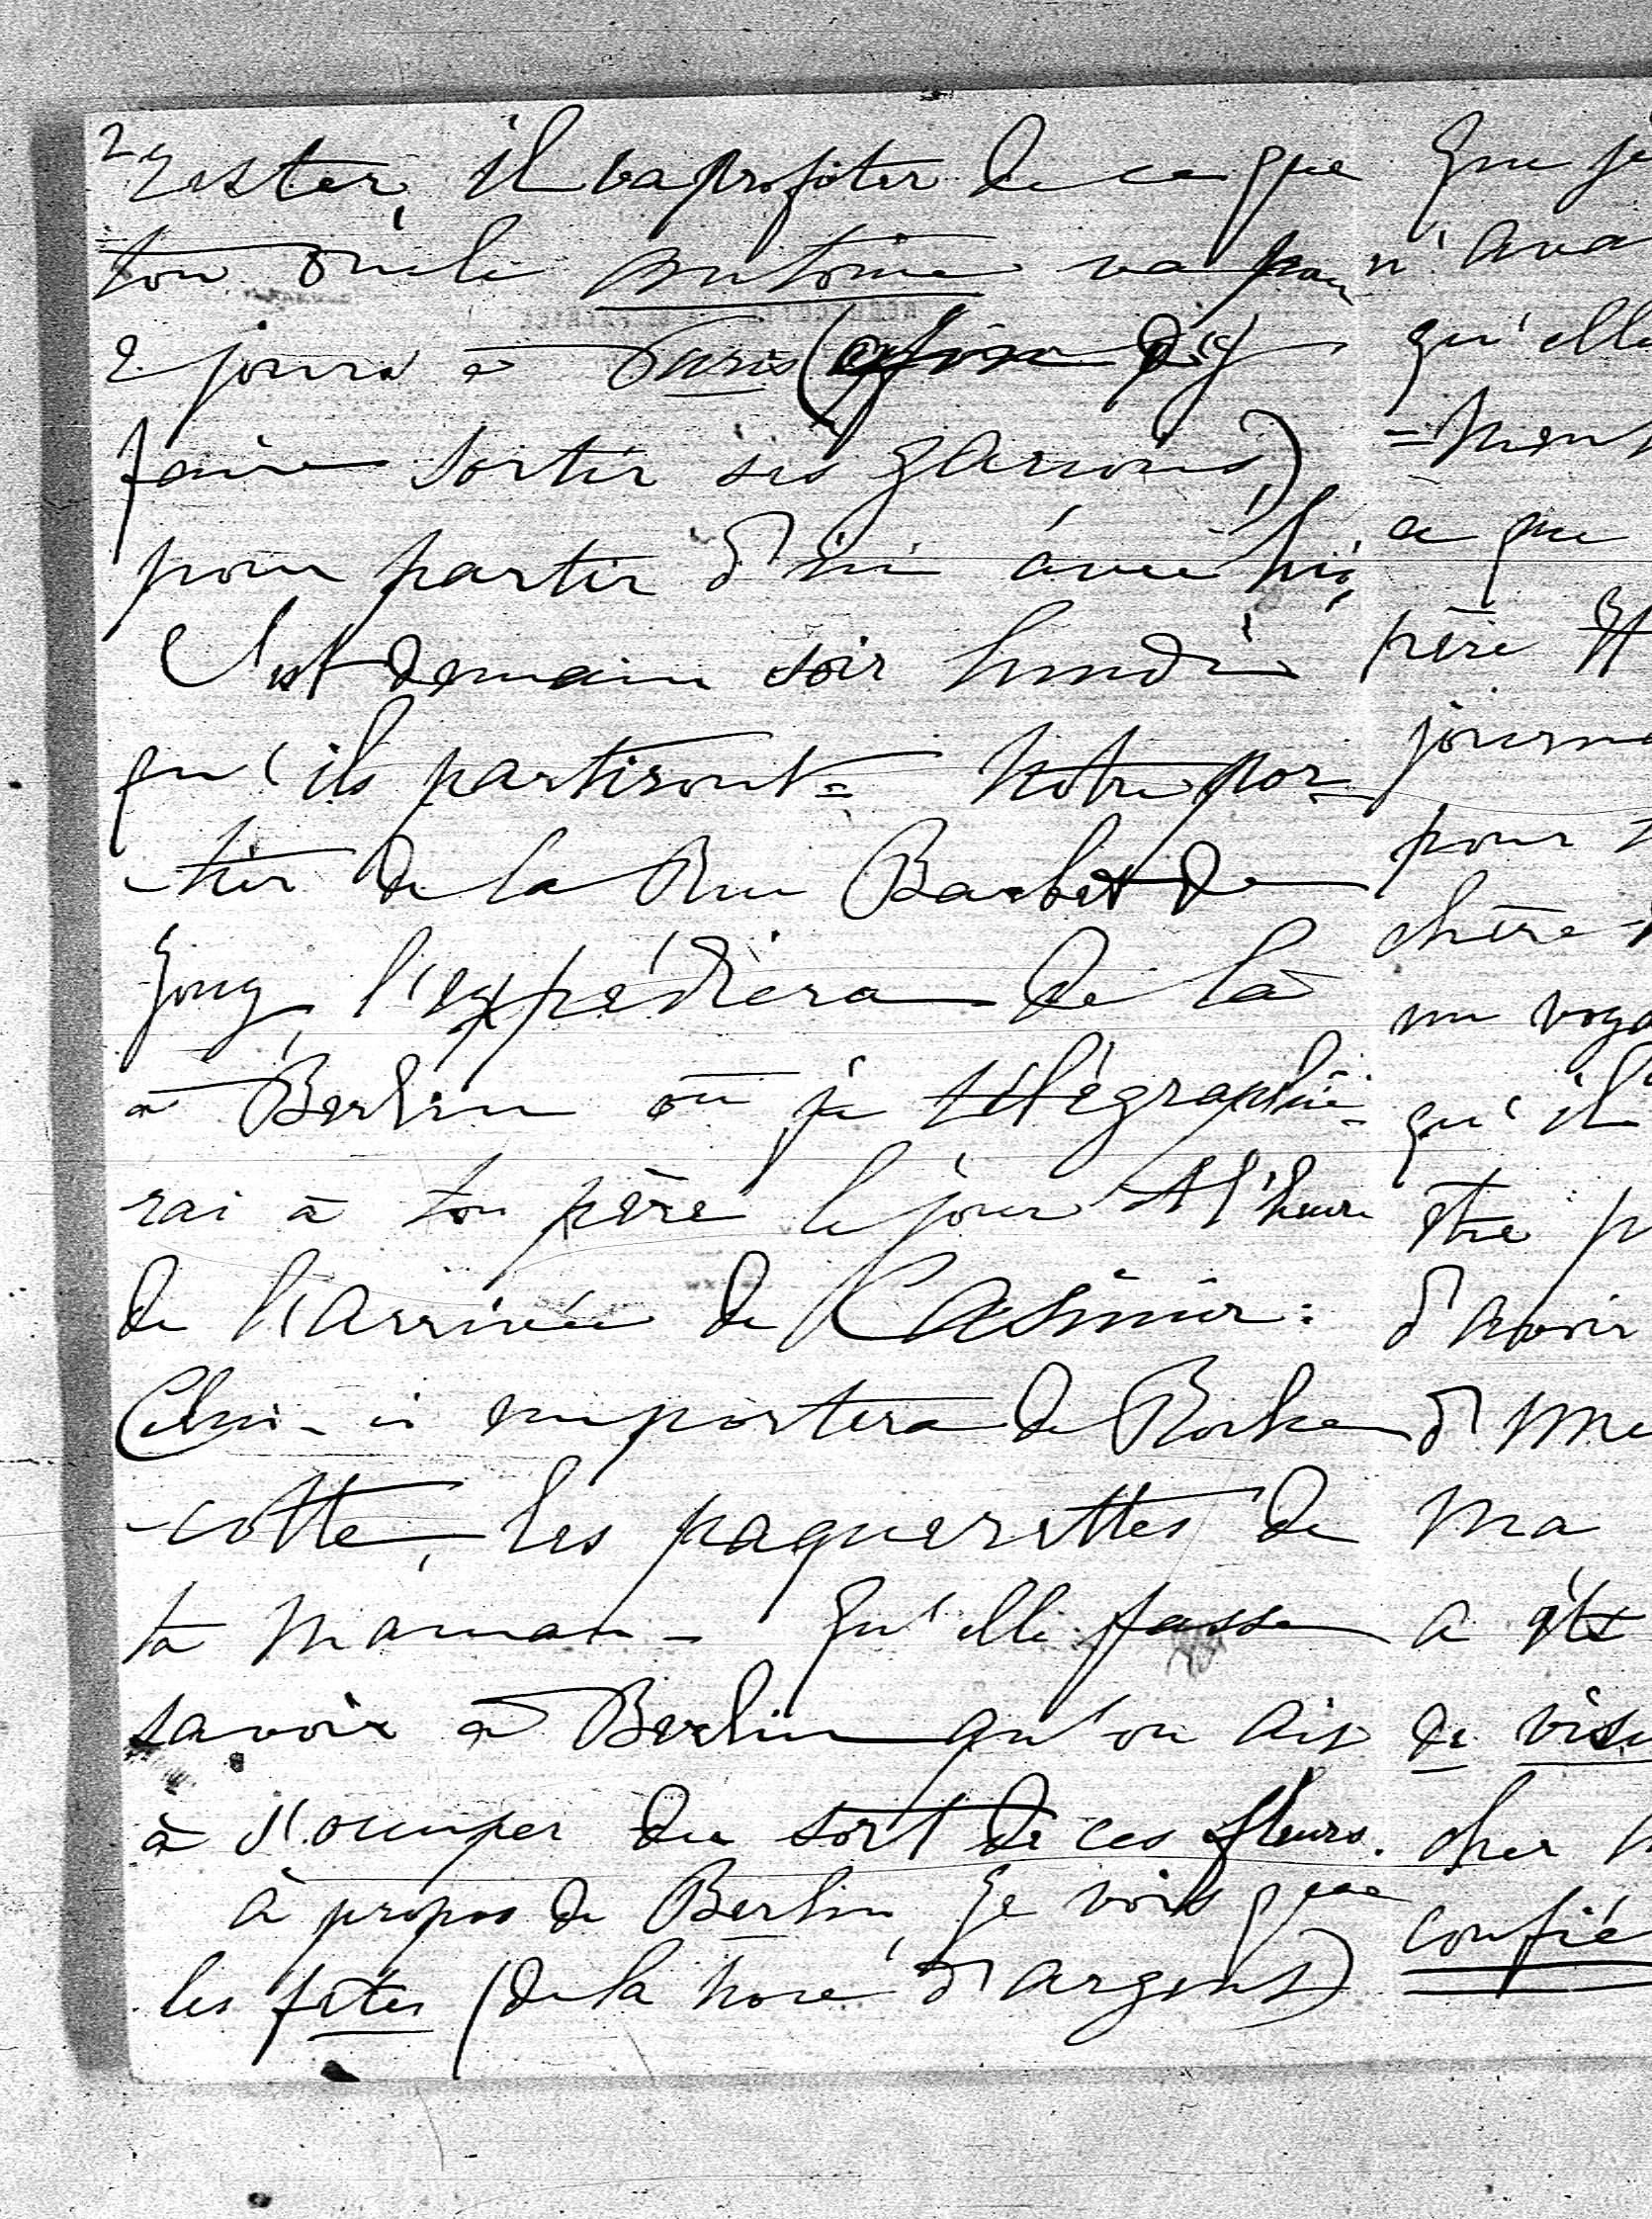 2
rester, il va profiter de ce que
ton oncle Antoine va pour
2 jours à Paris (afin d'y
faire sortir ses garçons)
pour partir d'ici avec lui,
C'est demain soir lundi
qu'ils partiront = Notre por-
-tier de la Rue Barbet de
Jouy, l'expédiera de là
à Berlin où je télégraphie-
rai à ton père le jour et l'heure
de l'arrivée de Casimir :
Celui-ci emportera de Roche
-cotte, les paquerettes de
ta Maman - Qu'elle fasse
savoir à Berlin qu'on ait
à s'occuper du sort de ces fleurs.
à propos de Berlin, je vois que
les fêtes (de la noce d'argent)
que je
n'ava
qu'elle
=ment
a que
père
journa
pour
chère
un voya
qu'il
être p
d'avoir
d'Me
Ma
a été
de visu
cher
confié